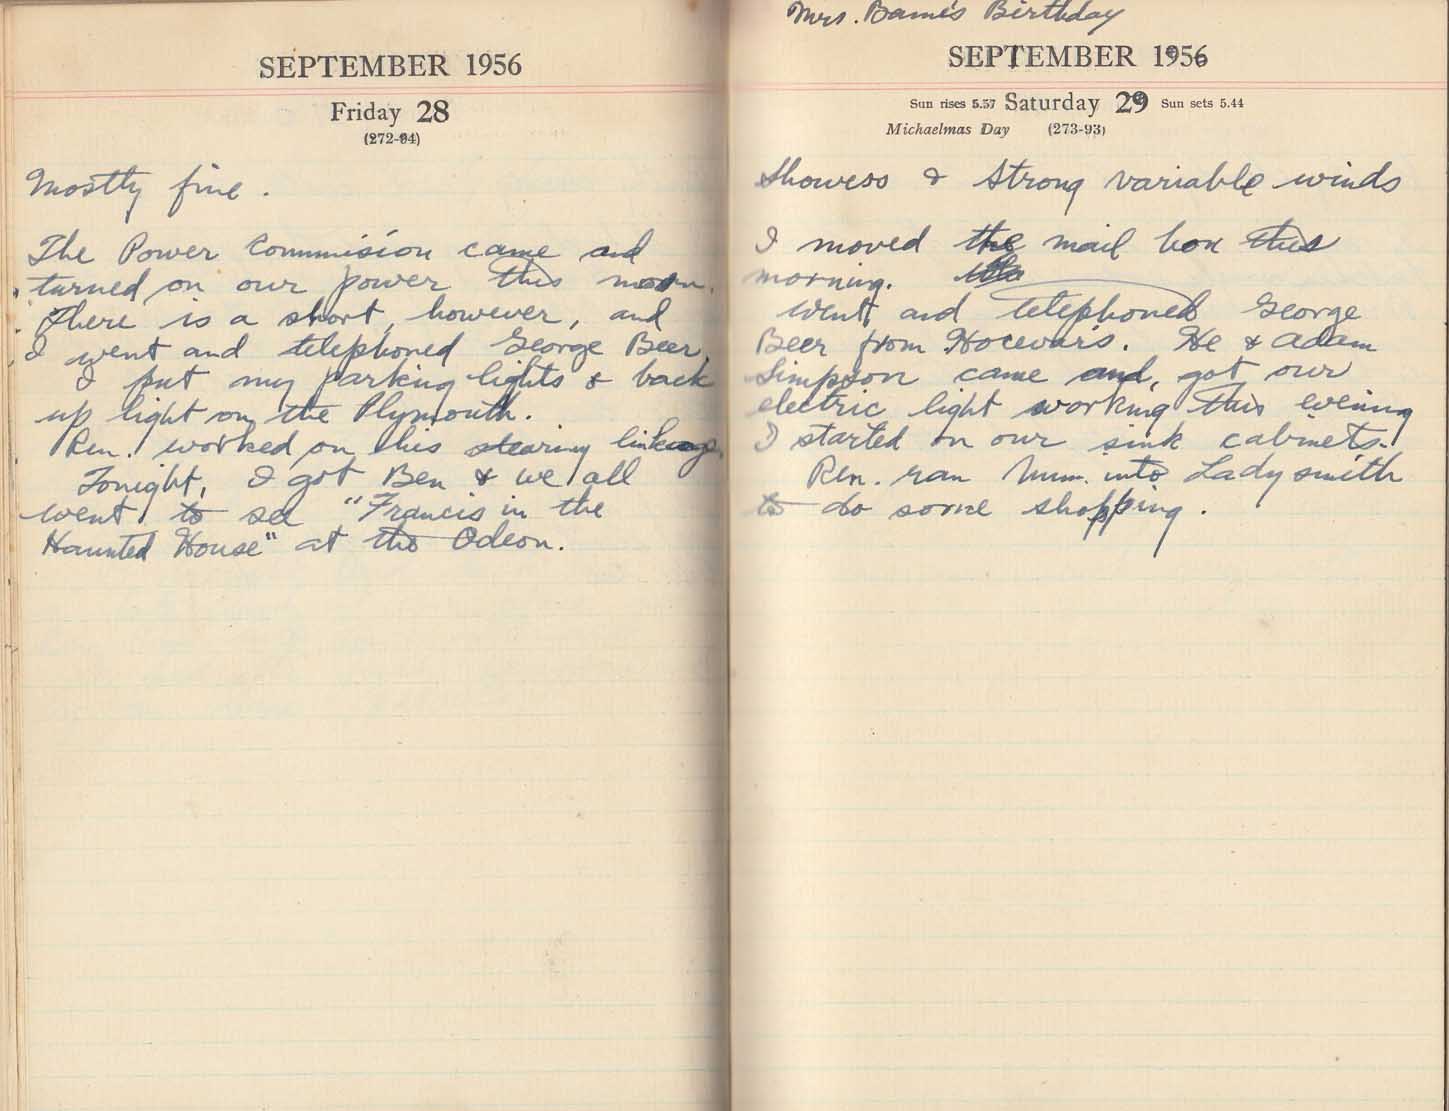 SEPTEMBER 1956
Friday 28
(272-94)
Mostly fine.
The Power Commision came and
turned on our power this morn.
There is a short, however, and
I went and telephoned George Beer.
I put my parking lights & back
up light on the Plymouth.
Ren. worked on his stearing linkage.
Tonight, I got Ben & we all
went to see "Francis in the
Haunted House" at the Odeon.
Mrs. Bame's Birthday
SEPTEMBER 1956
Sun rises 5.57 Saturday 29 Sun sets 5.44
Michaelmas Day (273-93)
Showers & strong variable winds
I moved the mail box this
morning.
Went and telephoned George
Beer from Hocevar's. He & Adam
Simpson came and, got our
electric light working this evening
I started on our sink cabinets.
Ren. ran Mum. into Ladysmith
to do some shopping.